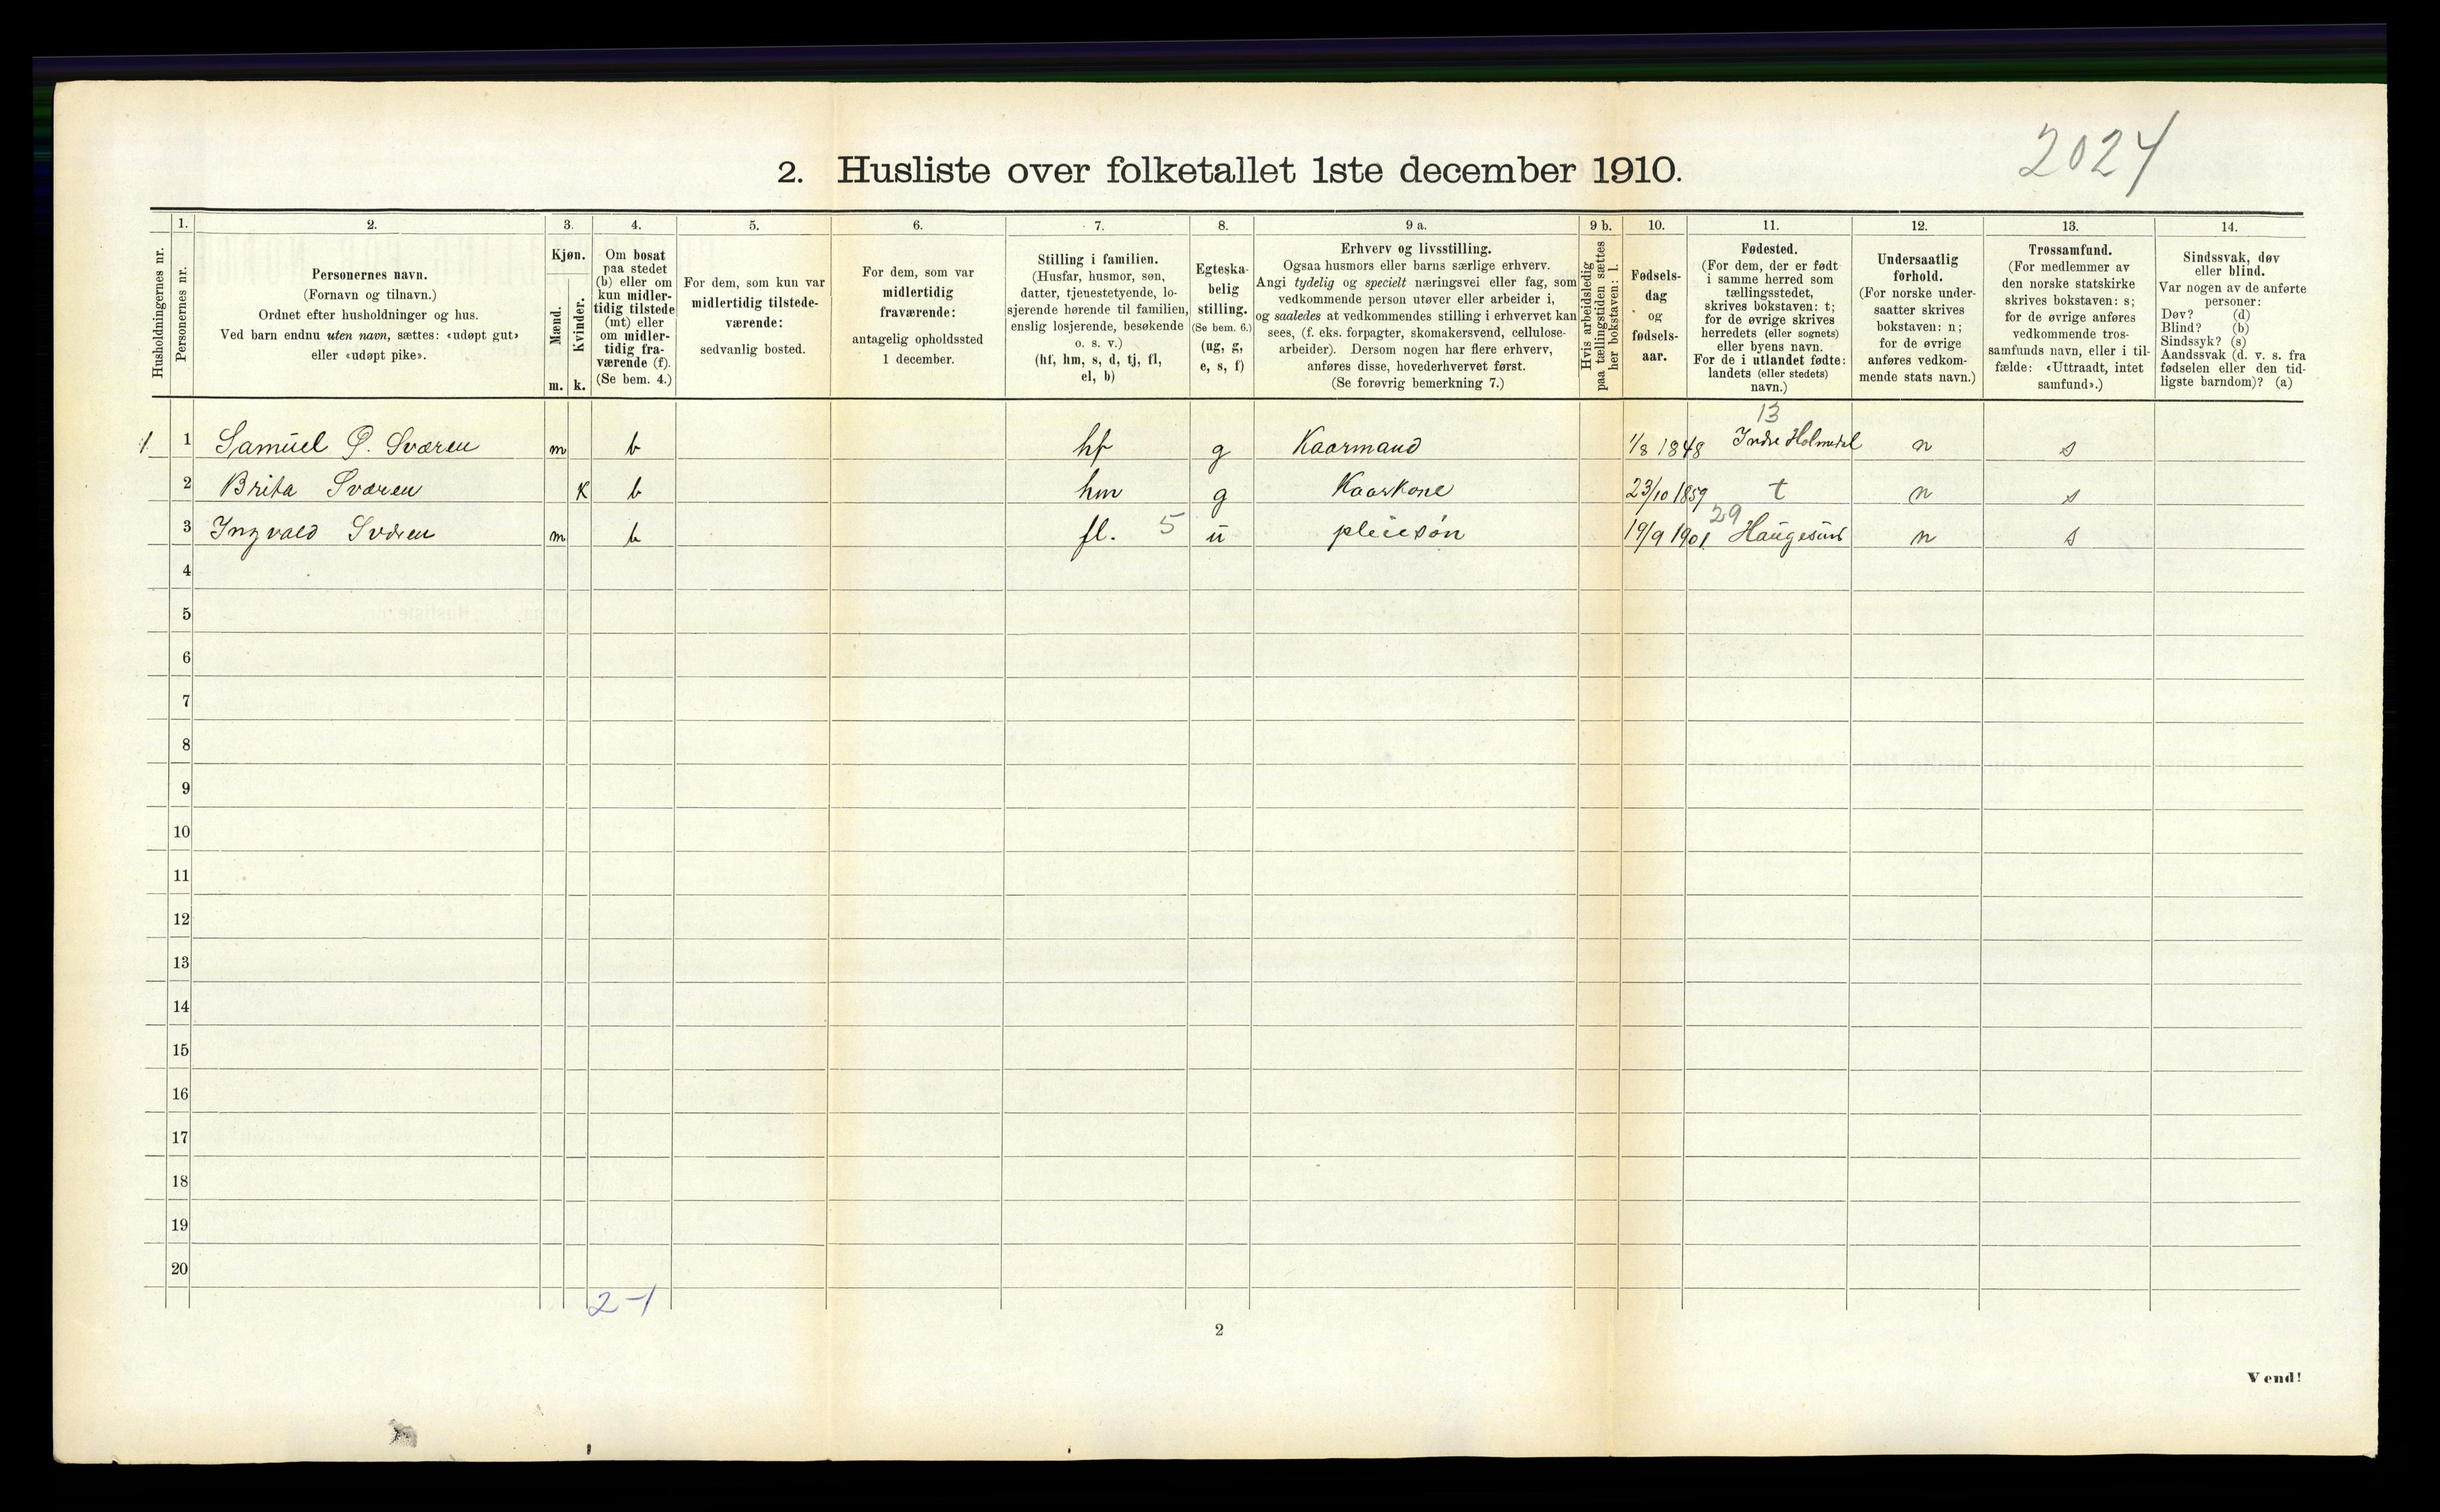 2024
2. Husliste over folketallet 1ste december 1910.
Husholdningernes nr.
1. Personernes nr.
2. Personernes navn.
(Fornavn og tilnavn.)
Ordnet efter husholdninger og hus.
Ved barn endnu uten navn, sættes: «udøpt gut»
eller «udøpt pike».
3. Kjøn.
Mænd. m.
Kvinder. k.
4. Om bosat
paa stedet
(b) eller om
kun midler-
tidig tilstede
(mt) eller
om midler-
tidig fra-
værende (f).
(Se bem. 4.)
5. For dem, som kun var
midlertidig tilstede-
værende:
sedvanlig bosted.
6. For dem, som var
midlertidig
fraværende:
antagelig opholdssted
1 december.
7. Stilling i familien.
(Husfar, husmor, søn,
datter, tjenestetyende, lo-
sjerende hørende til familien,
enslig losjerende, besøkende
o. s. v.)
(hf, hm, s, d, tj, fl,
el, b)
8. Egteska-
belig
stilling.
(Se bem. 6.)
(ug, g,
e, s, f)
9 a. Erhverv og livsstilling.
Ogsaa husmors eller barns særlige erhverv.
Angi tydelig og specielt næringsvei eller fag, som
vedkommende person utøver eller arbeider i,
og saaledes at vedkommendes stilling i erhvervet kan
sees, (f. eks. forpagter, skomakersvend, cellulose-
arbeider). Dersom nogen har flere erhverv,
anføres disse, hovederhvervet først.
(Se forøvrig bemerkning 7.)
9 b. Hvis arbeidsledig
paa tællingstiden sættes
her bokstaven: l.
10. Fødsels-
dag
og
fødsels-
aar.
11. Fødested.
(For dem, der er født
i samme herred som
tællingsstedet,
skrives bokstaven: t;
for de øvrige skrives
herredets (eller sognets)
eller byens navn.
For de i utlandet fødte:
landets (eller stedets)
navn.)
12. Undersaatlig
forhold.
(For norske under-
saatter skrives
bokstaven: n;
for de øvrige
anføres vedkom-
mende stats navn.)
13. Trossamfund.
(For medlemmer av
den norske statskirke
skrives bokstaven: s;
for de øvrige anføres
vedkommende tros-
samfunds navn, eller i til-
fælde: «Uttraadt, intet
samfund».)
14. Sindssvak, døv
eller blind.
Var nogen av de anførte
personer:
Døv? (d)
Blind? (b)
Sindssyk? (s)
Aandssvak (d. v. s. fra
fødselen eller den tid-
ligste barndom)? (a)
13
1 1 Samuel P. Sværen m b hf g Kaarmand 1/8 1848 Indre Holmedal n s
2 Brita Sværen K b hm g Kaarkone 23/10 1859 t n s
29
3 Ingvald Sværen m b fl. 5 u pleiesøn 19/9 1901 Haugesund n s
4
5
6
7
8
9
10
11
12
13
14
15
16
17
18
19
20
2-1
2
Vend!